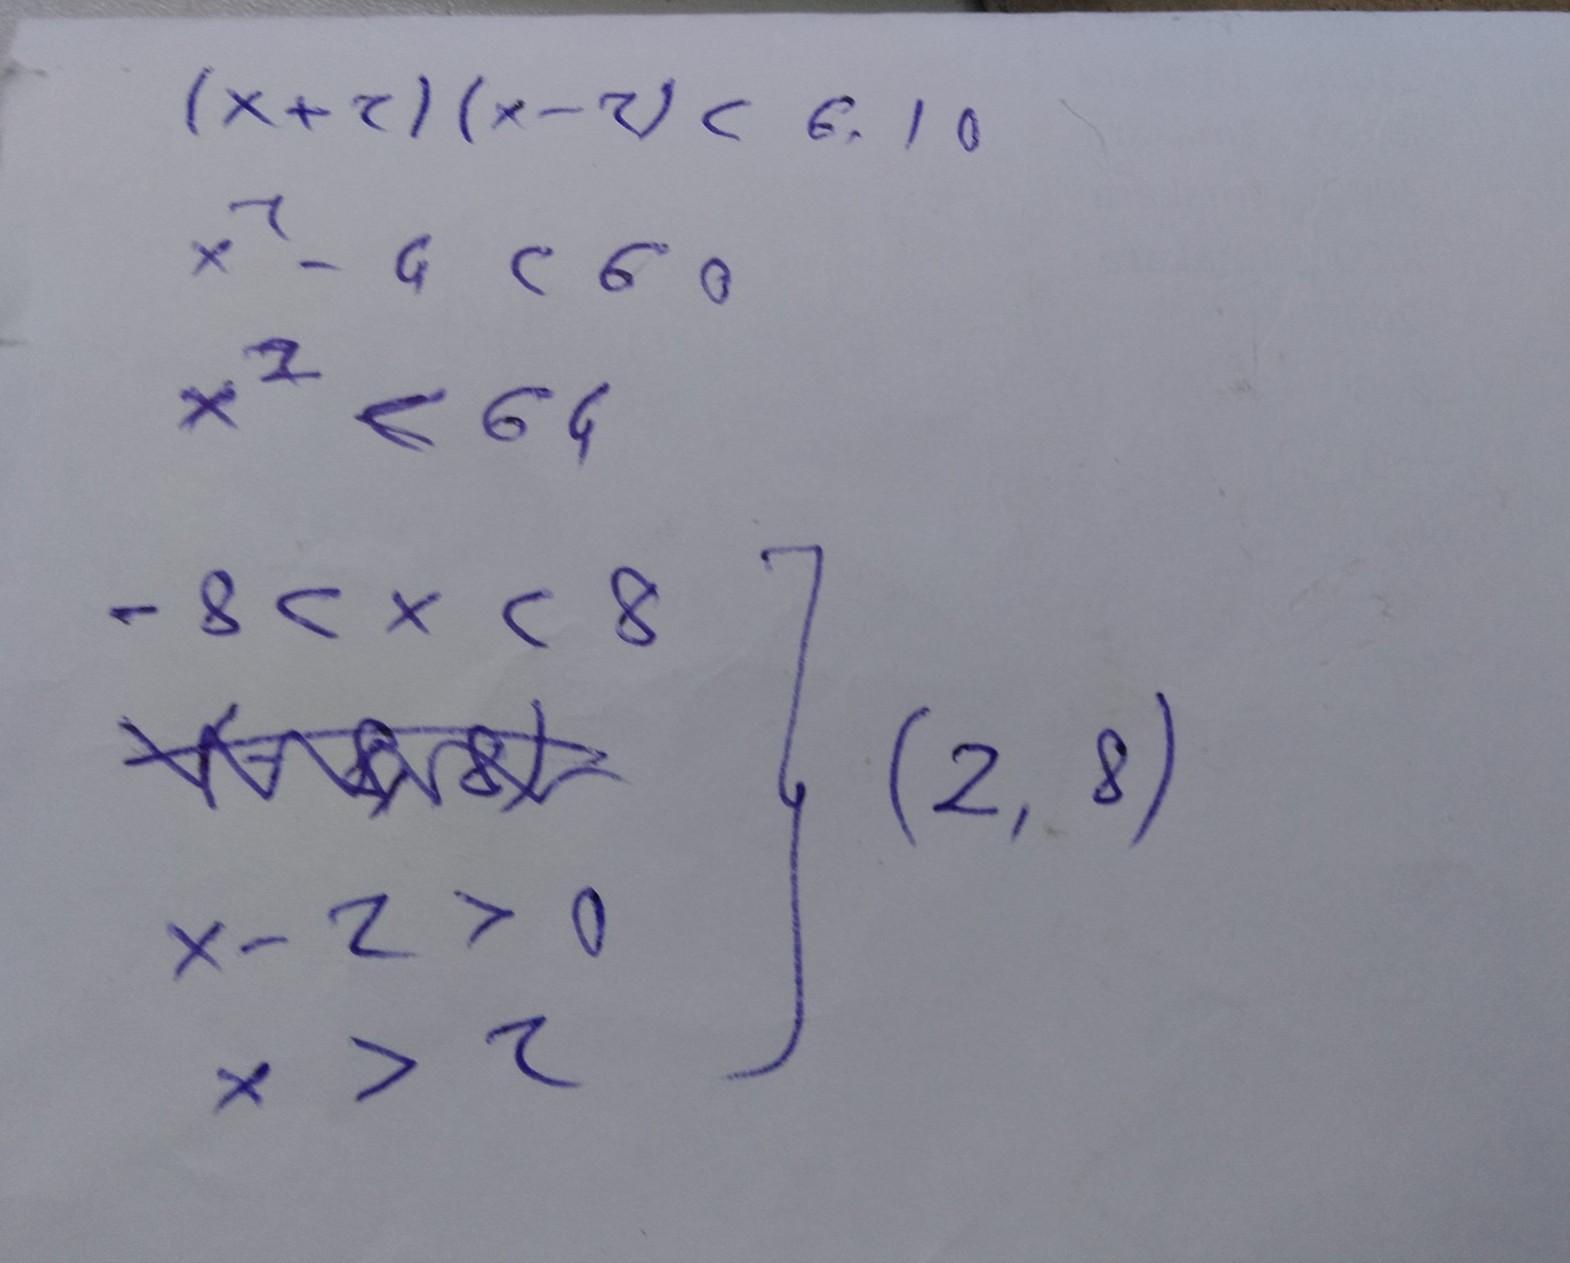 (x+2)(x-2) < 6.10
x² - 4 < 60
x² < 64
-8 < x < 8
(2, 8)
x - 2 > 0
x > 2